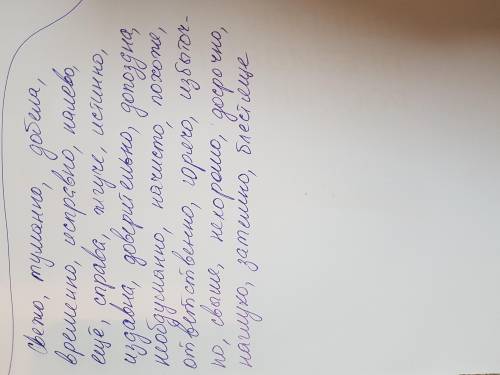 свежо, туманно, добела,
временно, исправно, налево,
ещё, справа, жгуче, истинно,
издавна, доверительно, допоздна,
необдуманно, начисто, похоже,
ответственно, горячо, избыточ-
но, свыше, нехорошо, досрочно,
наглухо, затемно, блестяще